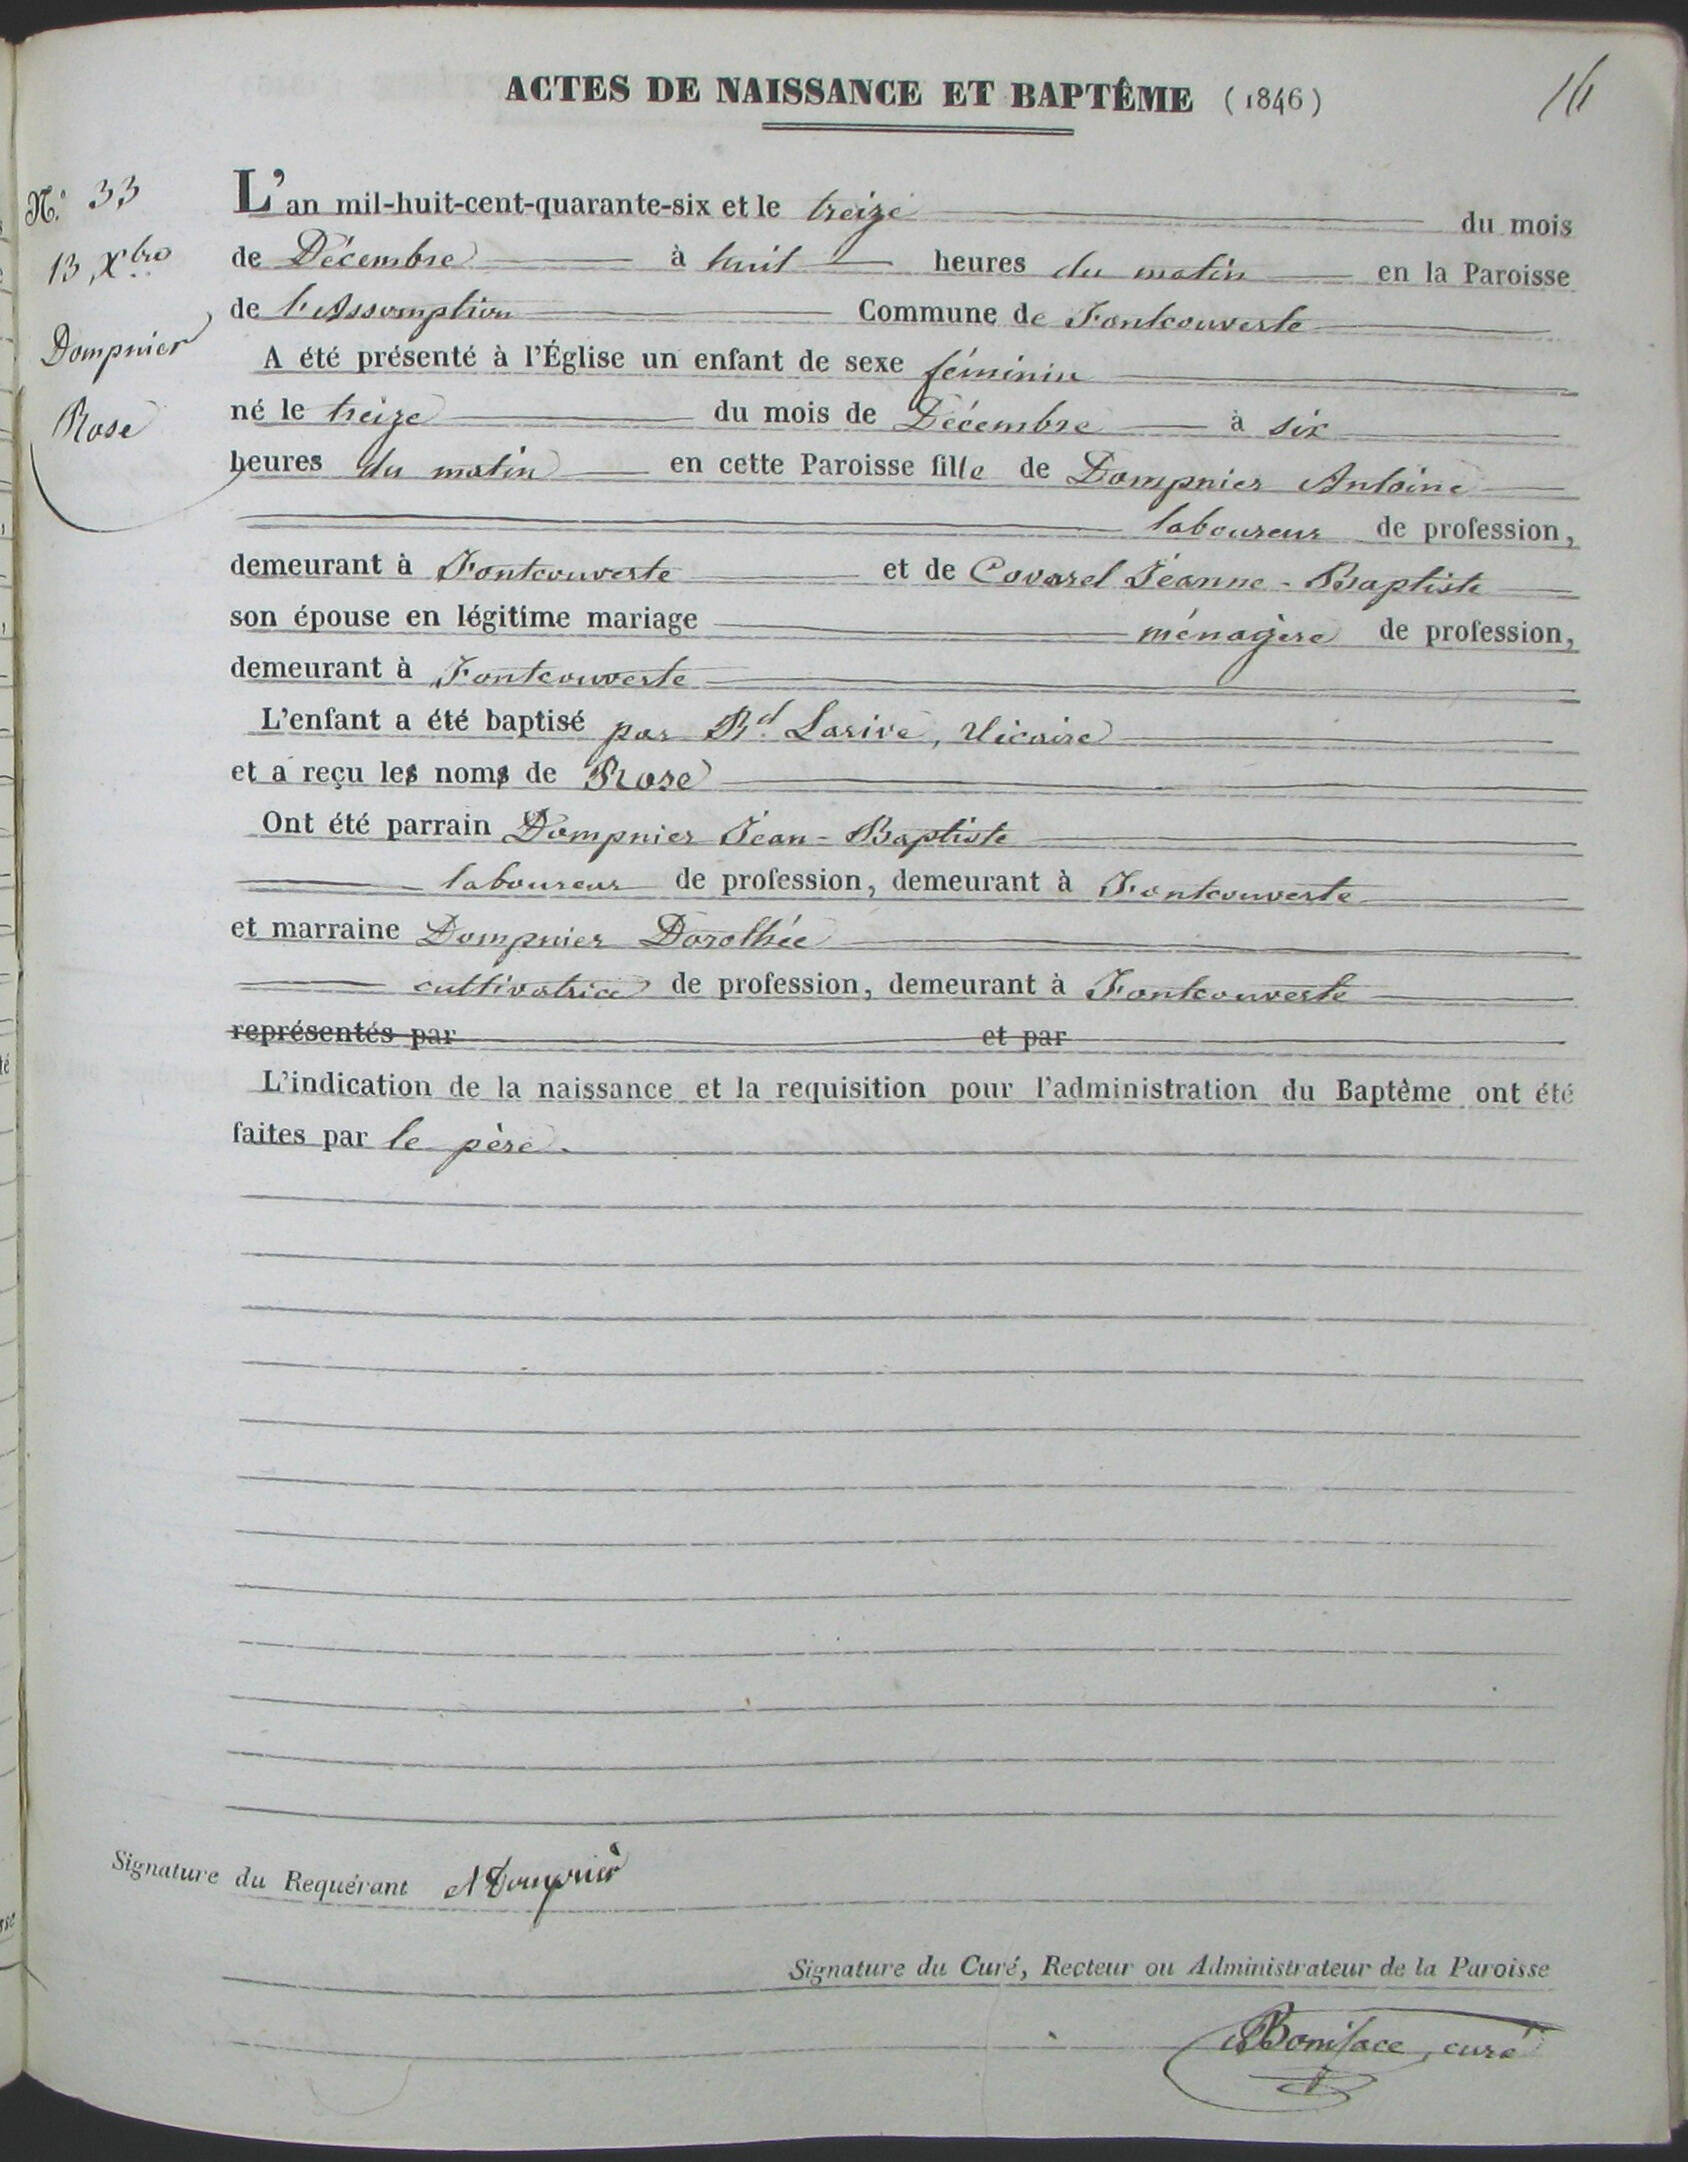 ACTES DE NAISSANCE ET BAPTÊME (1846)
16
N.° 33
13 Xbre
Dompnier
Rose
L'an mil-huit-cent-quarante-six et le treize du mois
de Décembre à huit heures du matin en la Paroisse
de l'Assomption Commune de Fontcouverte
A été présenté à l'Église un enfant de sexe féminin
né le treize du mois de Décembre à six
heures du matin en cette Paroisse fille de Dompnier Antoine
laboureur de profession,
demeurant à Fontcouverte et de Covarel Jeanne-Baptiste
son épouse en légitime mariage ménagère de profession,
demeurant à Fontcouverte
L'enfant a été baptisé par Rd. Larive, Vicaire
et a reçu les noms de Rose
Ont été parrain Dompnier Jean-Baptiste
laboureur de profession, demeurant à Fontcouverte
et marraine Dompnier Dorothée
cultivatrice de profession, demeurant à Fontcouverte
représentés par et par
L'indication de la naissance et la requisition pour l'administration du Baptême ont été
faites par le père.
Signature du Requérant A Dompnier
Signature du Curé, Recteur ou Administrateur de la Paroisse
Boniface, curé